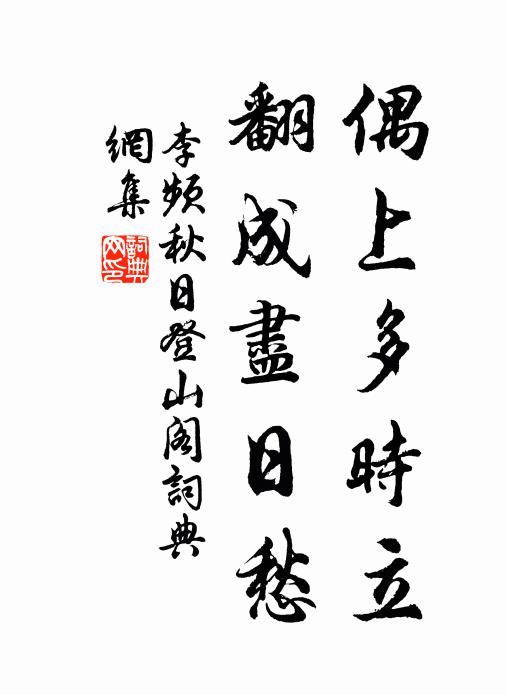 偶上多時立
翻成盡日愁
李頻秋日登山阁詞典
網集
詞典
网印